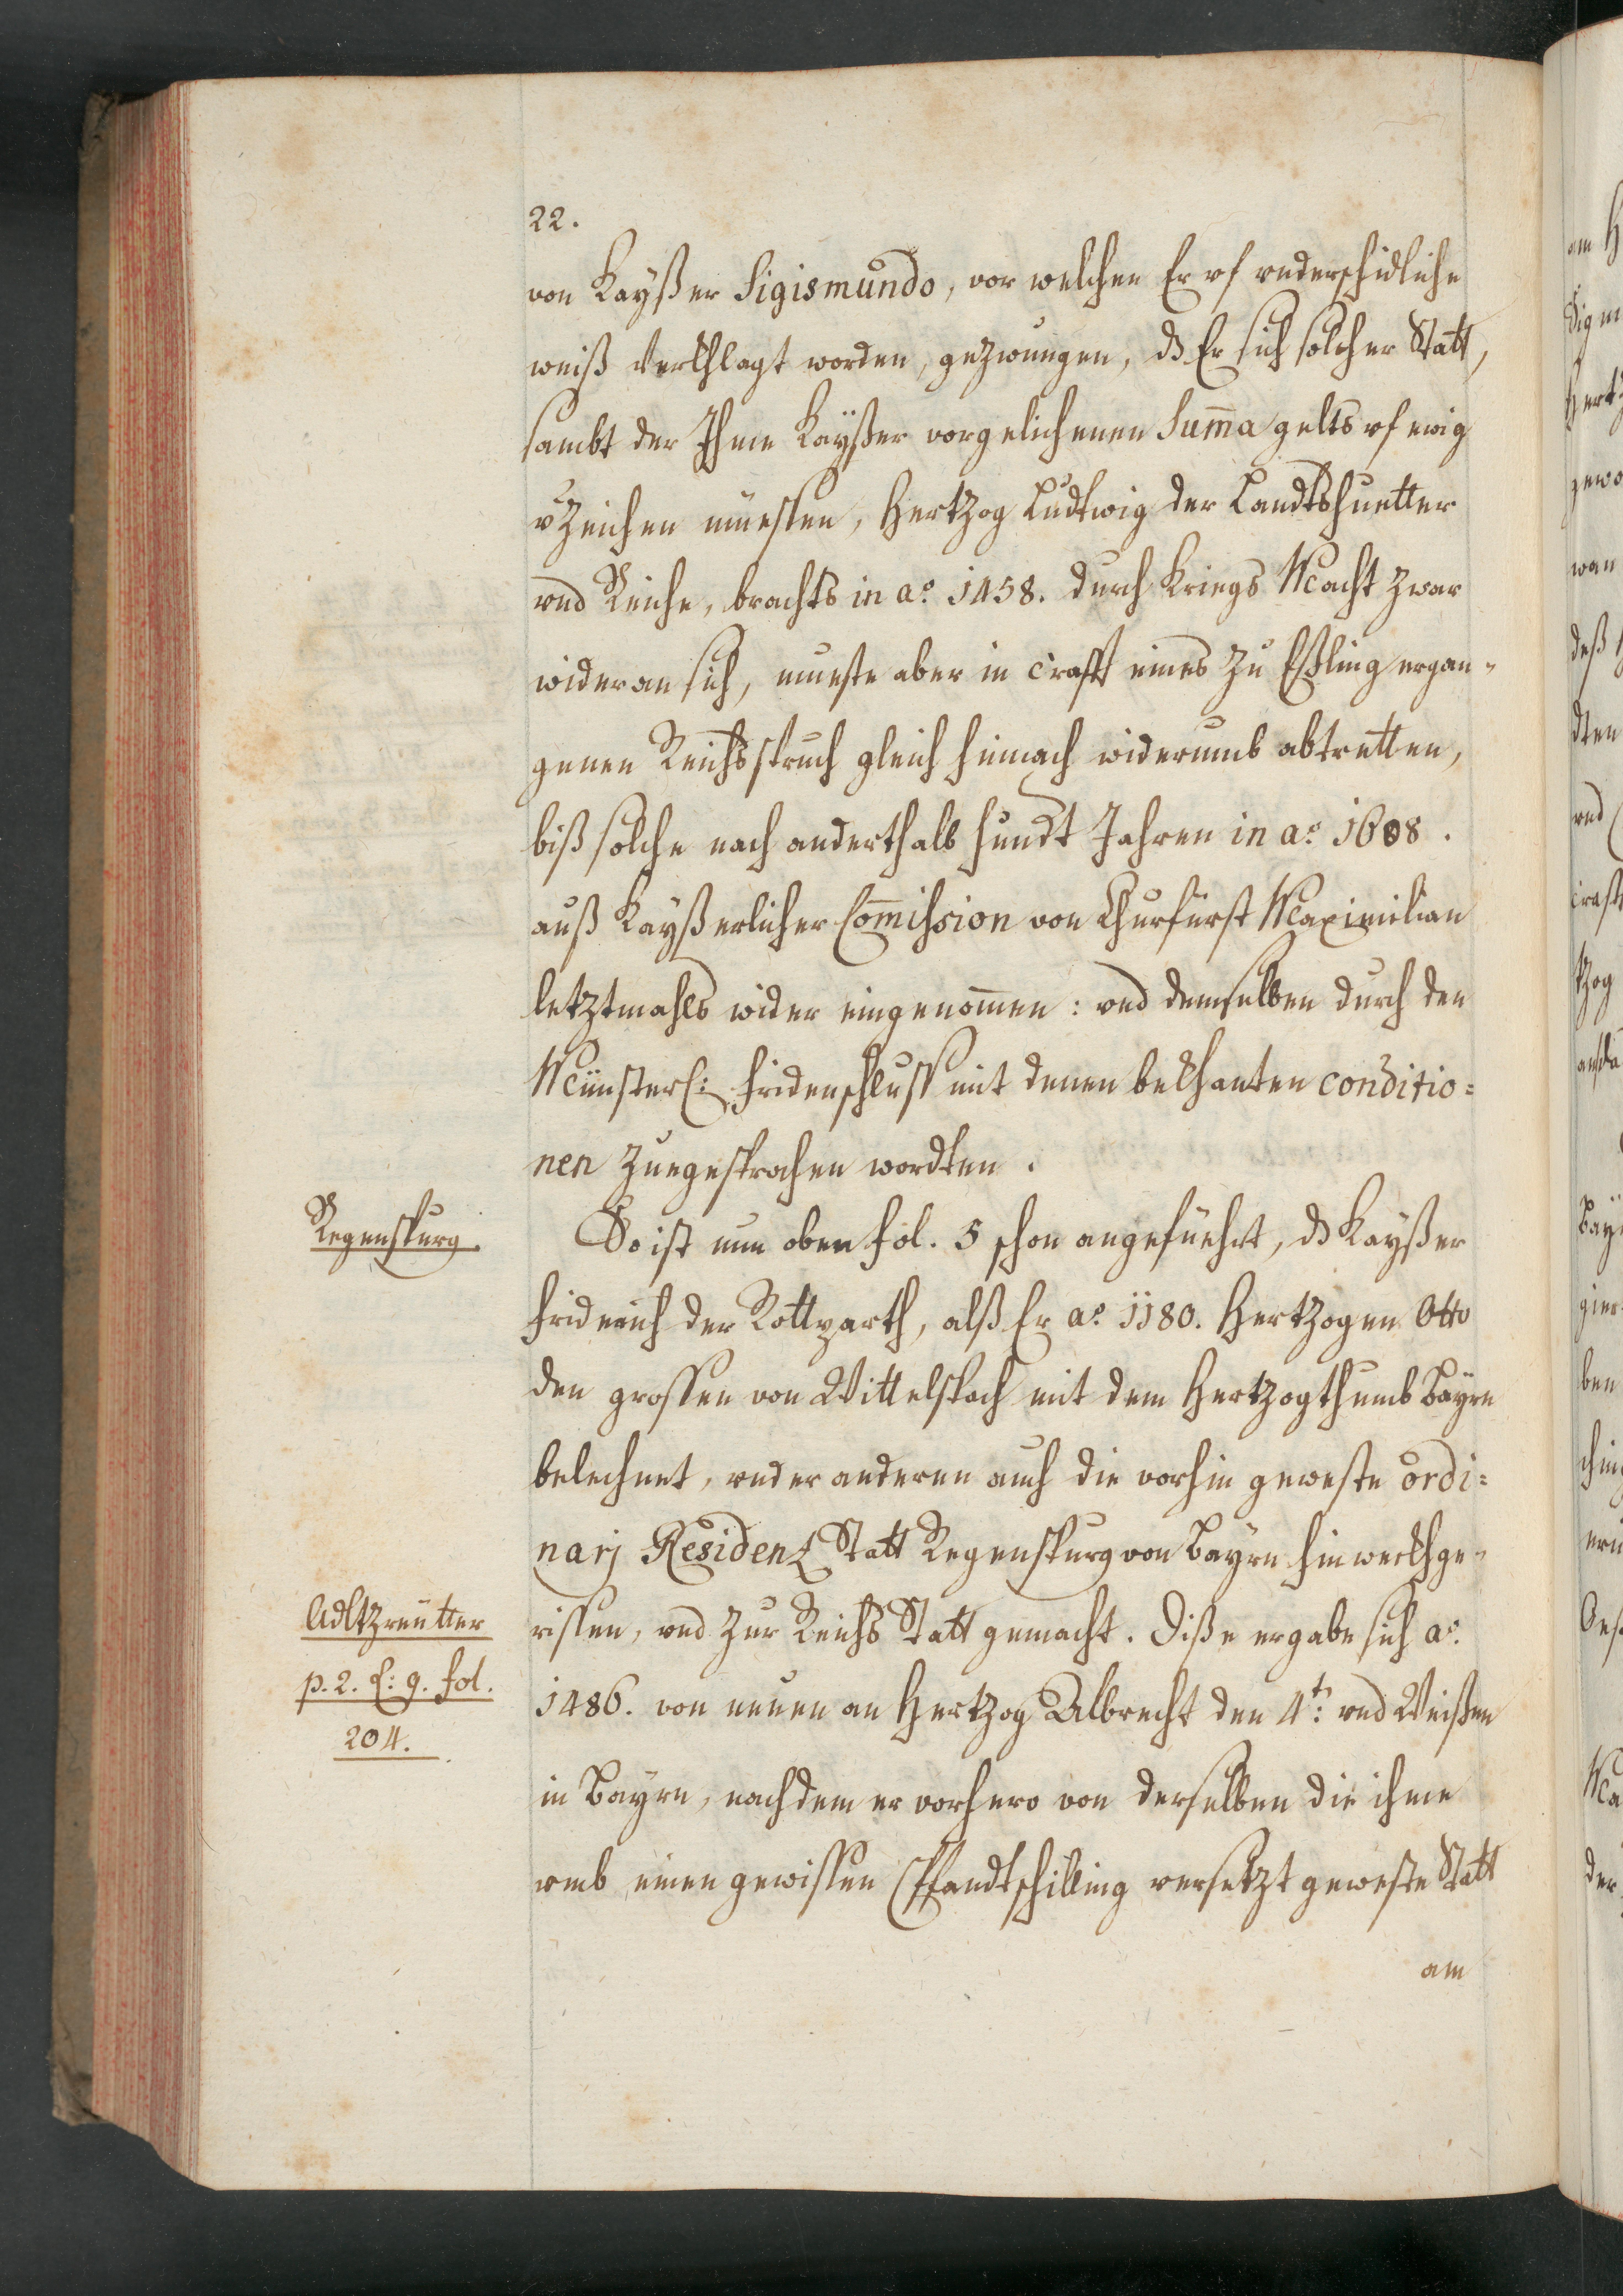 22.
von Kayßer Sigismundo, vor welchen Er vf vnderschidliche
weiß verkhlagt worden, gezwungen, dß Er sich solcher Statt,
sambt der Ihme Kaÿßer vorgelichenen Sum̄a gelts vf ewig
vzeichen müessen, Hertzog Ludtwig der Landtshuetter
vnd Reiche, brachts in ao. 1458. durch Kriegs Macht zwar
wider an sich, mueste aber in crafft eines zu Eßling ergan-
genen Reichsspruch gleich hinnach widerumb abtretten,
biß solche nach anderthalb hundt Jahren in ao. 1608.
auß Kayßerlicher Com̄ission von Churfürst Maximilian
letztmahls wider eingenom̄en: vnd demselben durch den
Münsterl: Fridenschluss mit denen bekhanten conditio=
nen zuegesprochen wordten.
Regenspurg.
So ist nun oben fol. 5 schon angefüehrt, dß Kayßer
Friderich der Rottparth, alß Er ao. 1180. Hertzogen Otto
den grossen von Wittelspach mit dem Hertzogthumb Bayrn
belechnet, vnder anderen auch die vorhin geweste ordi=
narj Residenz Statt Regenspurg von Bayrn hinweckhge-
Adltzreutter
p. 2. l: 9. fol.
204.
rissen, vnd zur Reichs Statt gemacht. Diße ergabe sich ao.
1486. von neuen an Hertzog Albrecht den 4t: vnd Weißen
in Bayrn, nachdem er vorhero von derselben die ihme
vmb einen gewissen Pfandtschilling versetzt geweste Statt
am